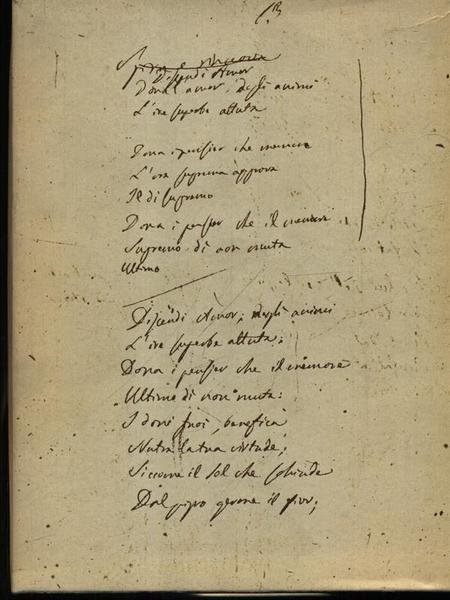 Discendi Amor
negli animi
L'ire superbe attuta
Dona i pensier che memore
L'ora suprema approva
Il di supremo
Dona i pensier che il memore
Supremo di non muta
Ultimo
Discendi Amor; negli animi
L'ire superbe attuta;
Dona i pensier che il memore
Ultimo di non muta:
I doni tuoi benefica
Nutra la tua virtude;
Siccome il sol che schiude
Dal pigro germe il fior;